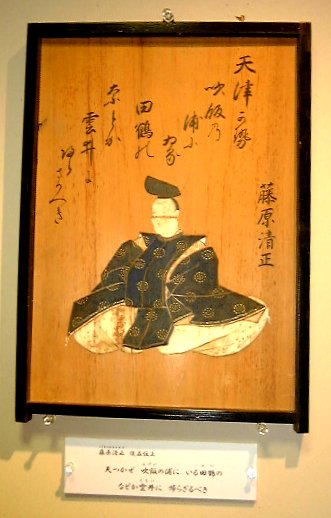 藤原清正
天津可勢
吹飯乃
浦尓
為る
田鶴能
なとか
雲井尓
かへらさるへき
藤原清正 従五位上
天つかぜ 吹飯の浦に いる田鶴の
などか雲井に 帰らざるべき